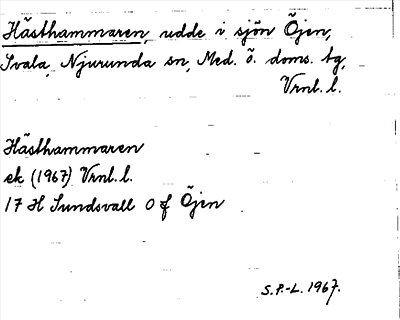 Hästhammaren, udde i sjön Öjen,
Svala, Njurunda sn, Med. ö. doms. tg,
Vrnl. l.
Hästhammaren
ek (1967) Vrnl. l.
17 H Sundsvall O f Öjen
S.P.-L. 1967.